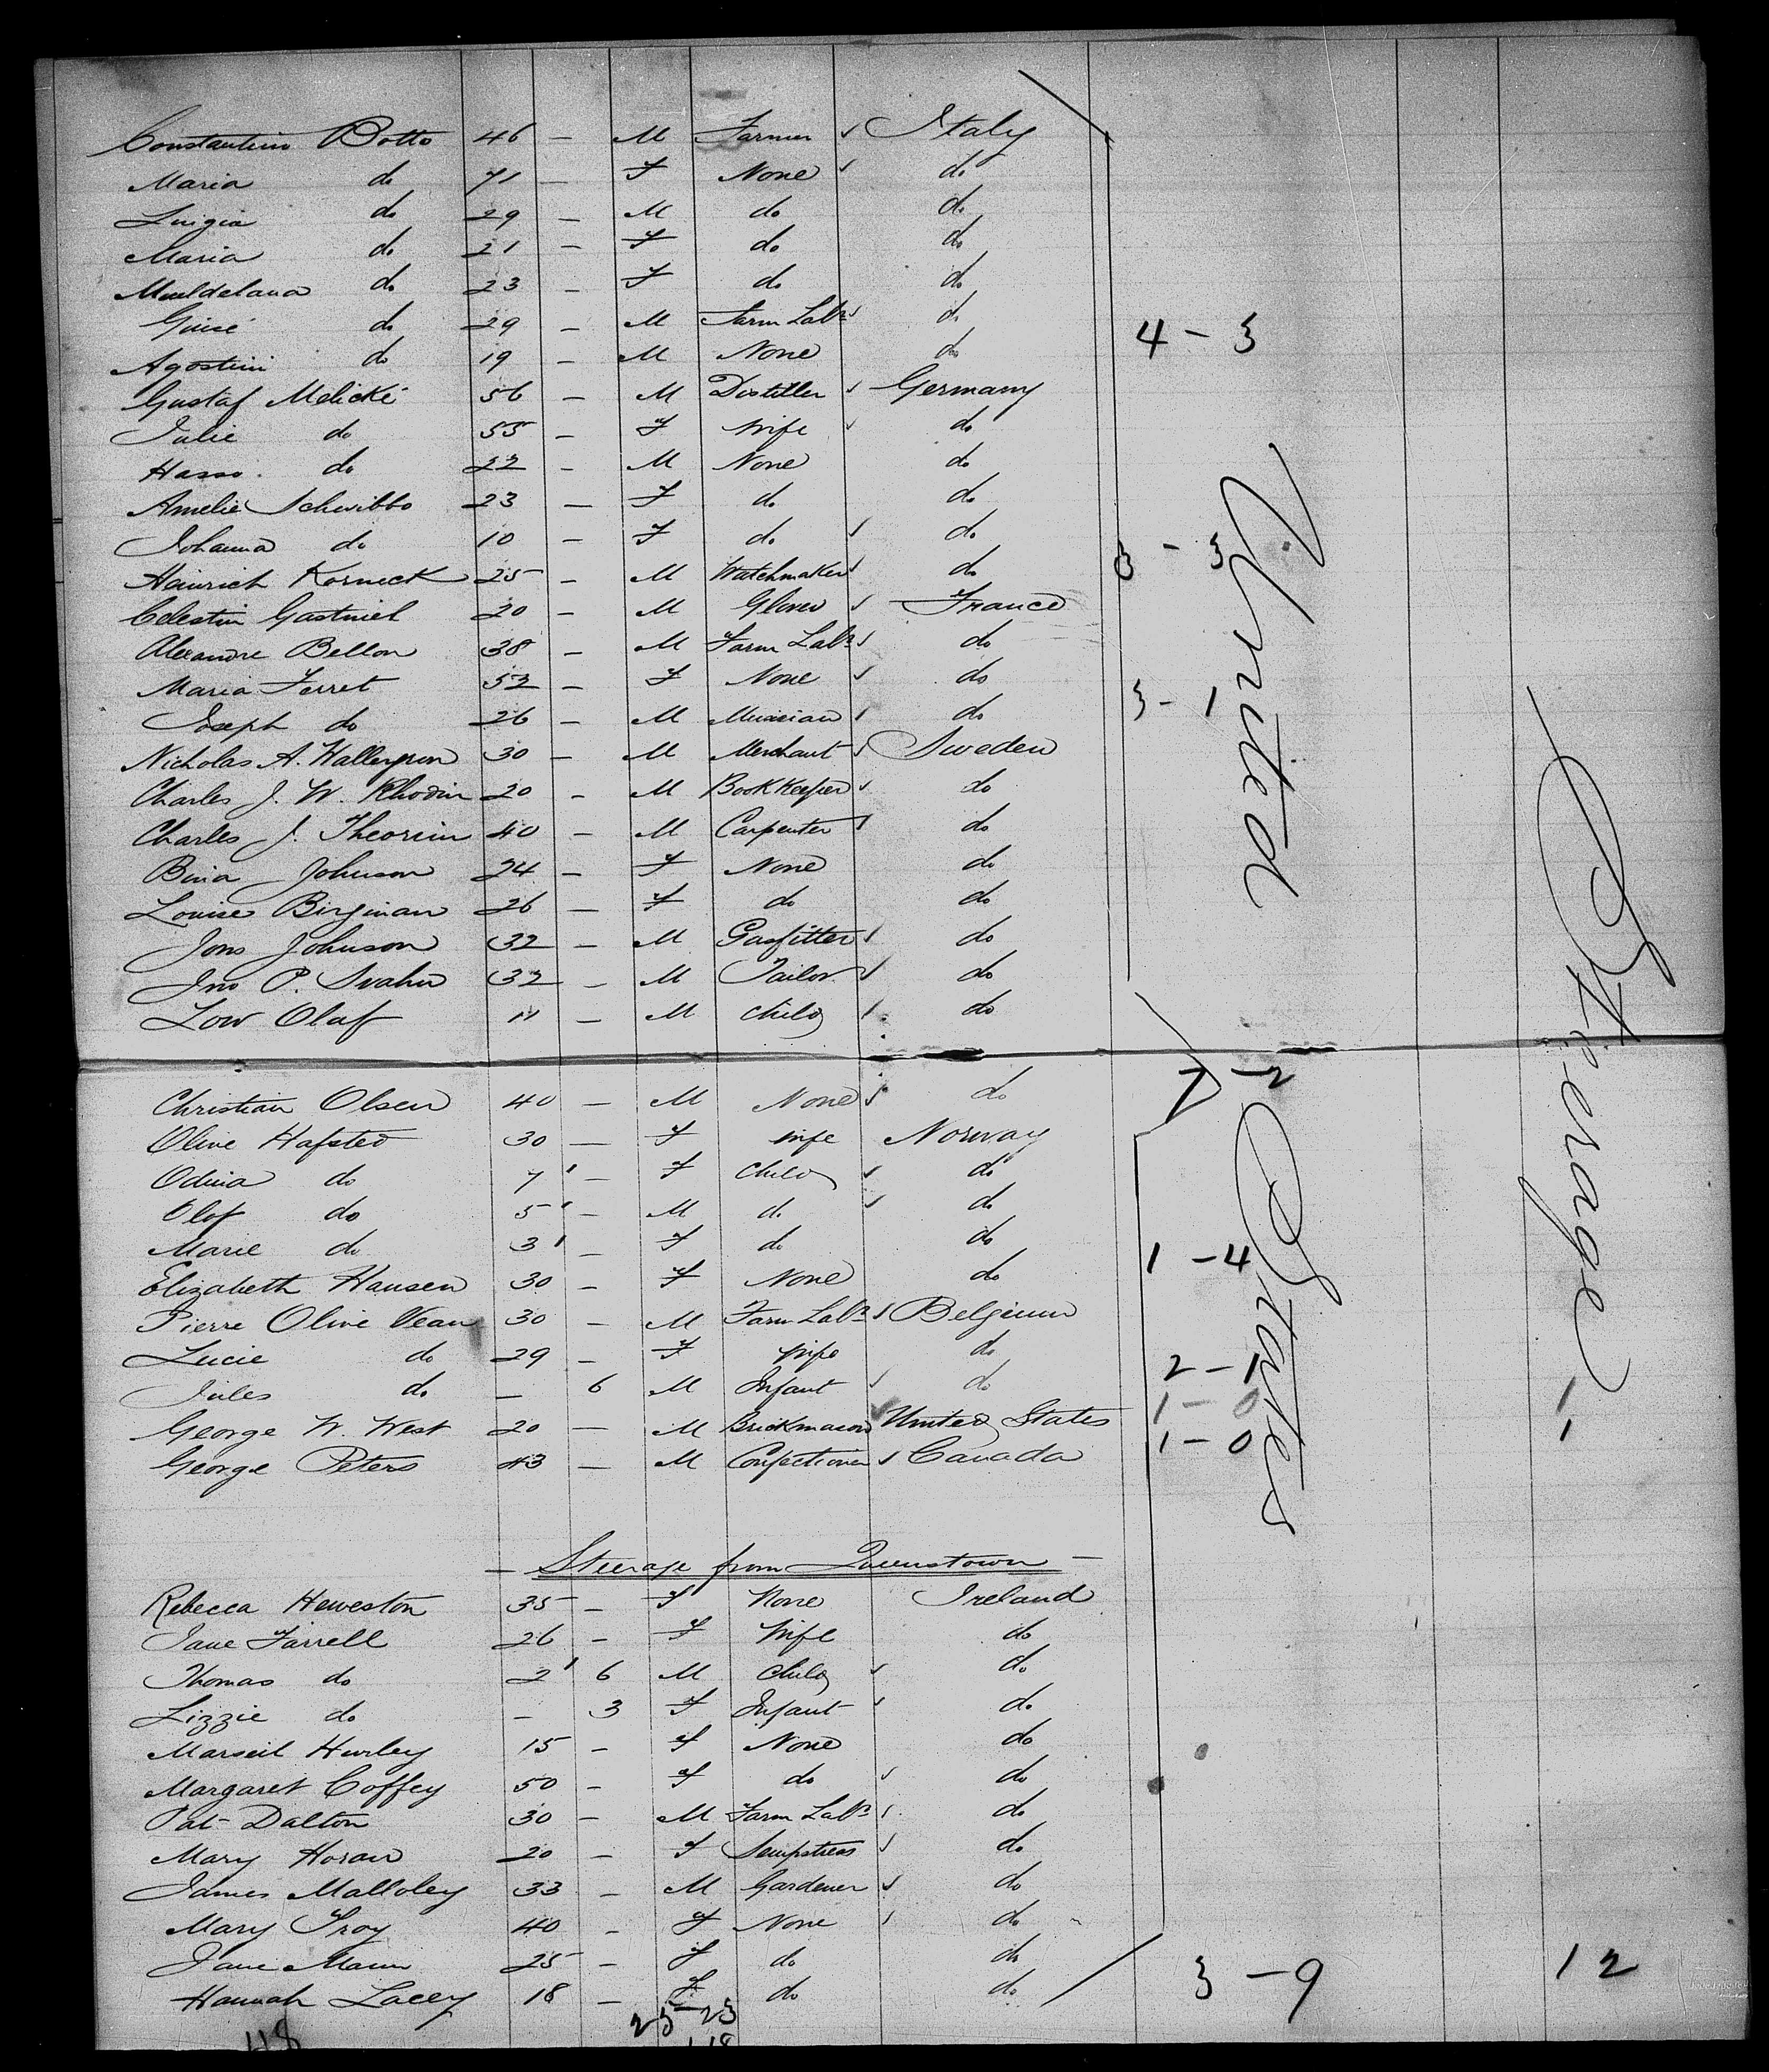 Constantino Botto 46 — M Farmer ✓ Italy
Maria do 71 — F None ✓ do
Luigia do 29 — M do do
Maria do 21 — F do do
do 23 — F do do
do 29 — M Farm Labr ✓ do
Agostini do 19 — M None do 4 - 3
Gustaf Melické 56 — M Distiller ✓ Germany
Julie do 55 — F Wife ✓ do
Hasso. do 22 — M None do
Amelie Schwibbo 23 — F do do
Johanna do 10 — F do ✓ do
Heinrich Korneck 25 — M Watchmaker ✓ do 3 - 3
Celestin Gastniel 20 — M Glover ✓ France
Alexandre Bellon 38 — M Farm Labr ✓ do
Maria Ferret 52 — F None ✓ do
Joseph do 26 — M Musician ✓ do 3 - 1
Nicholas A. Wallengron 30 — M Merchant ✓ Sweden
Charles J. W. Rhodin 20 — M BookKeeper ✓ do
Charles J. Theorin 40 — M Carpenter ✓ do
Bina Johnson 24 — F None do
Louise Birginan 26 — F do do
Jons Johnson 32 — M Gasfitter ✓ do
Jno P. Svahn 32 — M Tailor ✓ do
Low Olaf 11 — M Child ✓ do
Christian Olsen 40 — M None ✓ do 7 - 2
Olive Hafsted 30 — F Wife Norway
Odina do 7 — F Child ✓ do
Olof do 5 — M do ✓ do
Marie do 3 — F do do
Elizabeth Hansen 30 — F None do 1 - 4
Pierre Olive Vean 30 — M Farm Labr ✓ Belgium
Lucie do 29 — F Wife do
Jules do — 6 M Infant ✓ do 2 - 1
George W. West 20 — M Brickmason ✓ United States 1 - 0 1
George Peters 43 — M Confectioner ✓ Canada 1 - 0 1
United States
Steerage
— Steerage from Queenstown —
Rebecca Heweston 35 — F None Ireland
Jane Farrell 26 — F Wife do
Thomas do 2 6 M Child ✓ do
Lizzie do — 3 F Infant ✓ do
Hurley 15 — F None do
Margaret Coffey 50 — F do ✓ do
Pat Dalton 30 — M Farm Labr ✓ do
Mary Horan 20 — F Sempstress ✓ do
James Malloley 33 — M Gardener ✓ do
Mary Troy 40 — F None ✓ do
Jane Mann 25 — F do do
Hannah Lacey 18 — F do do 3 - 9 12
25 - 23
48